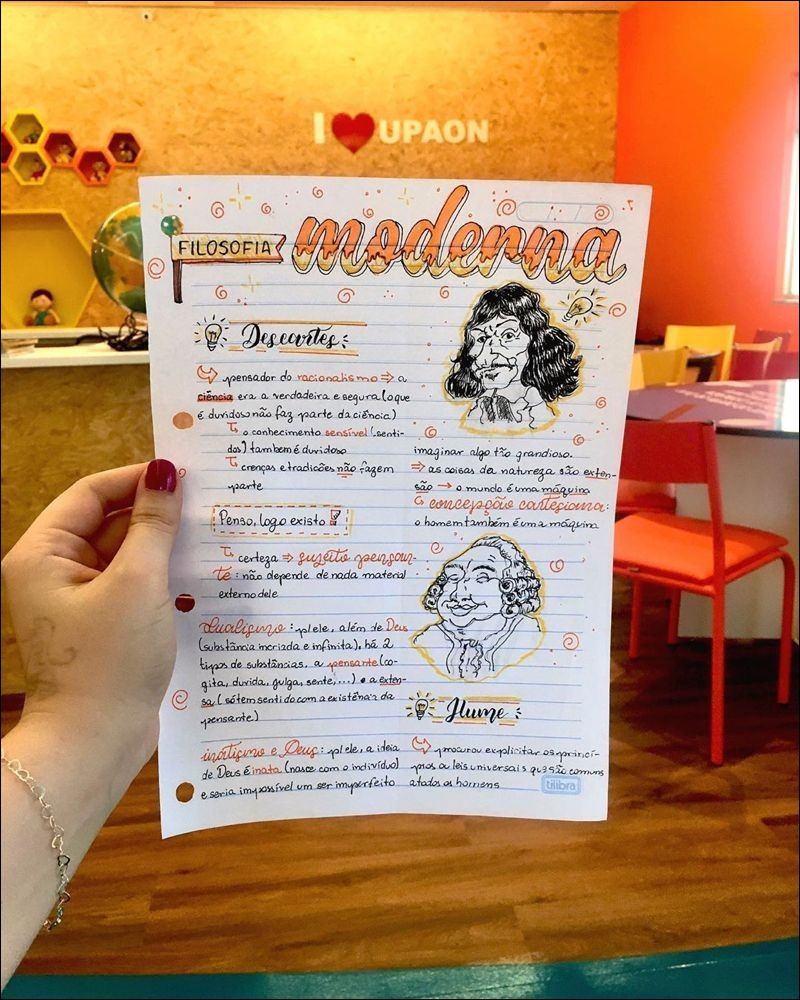 I ❤ UPAON
FILOSOFIA moderna
Descartes
↪ pensador do racionalismo ⇒ a
ciência era a verdadeira e segura (o que
é duvidoso não faz parte da ciência)
↳ o conhecimento sensível (senti-
dos) também é duvidoso
↳ crenças e tradições não fazem
parte
Penso, logo existo
↳ certeza ⇒ sujeito pensan-
te: não depende de nada material
externo dele
dualismo: p/ ele, além de Deus
(substância incriada e infinita), há 2
tipos de substâncias, a pensante (co-
gita, duvida, julga, sente,...) e a exten-
sa (só tem sentido com a existência da
pensante)
inatismo e Deus: p/ ele, a ideia
de Deus é inata (nasce com o indivíduo)
e seria impossível um ser imperfeito
imaginar algo tão grandioso.
⇒ as coisas da natureza são exten-
são → o mundo é uma máquina
↳ concepção cartesiana:
o homem também é uma máquina
Hume
↪ procurou explicitar os princí-
pios ou leis universais que são comuns
a todos os homens
tilibra